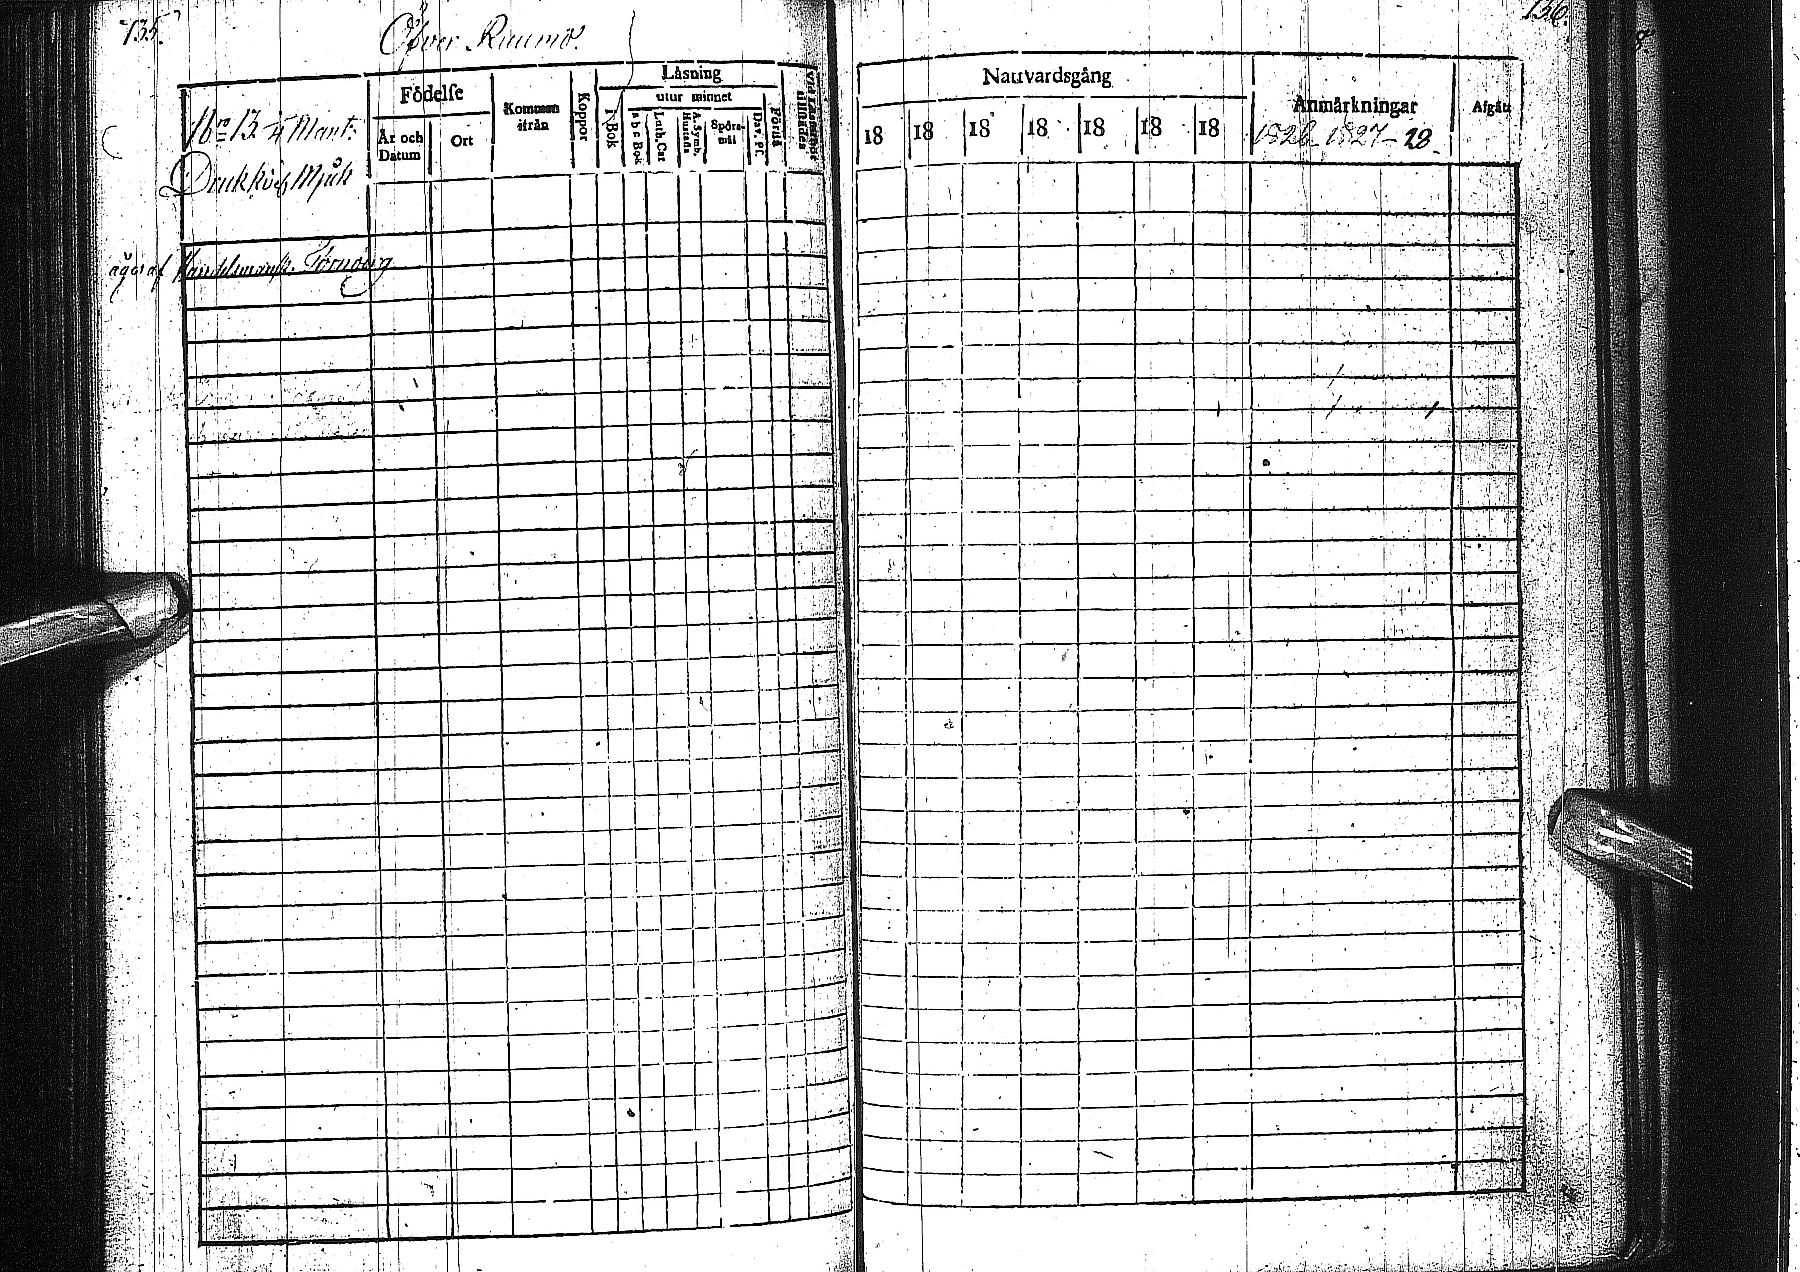 135.
Öfver Raumo.
N:ro 13. ¼ Mant:
Mjuk
Födelse
År och Datum
Ort
Kommen ifrån
Koppor
Läsning
utur minnet
I Bok
a b c Bok
Luth. Cat
A. Symb. Hustafla
Spörs-mål
Dav. Pſ.
Förstå
äges af Handelsmans. Törnberg
136.
Nattvardsgång
18 18 18 18 18 18 18
Anmärkningar
1826 1827 - 28.
Afgått